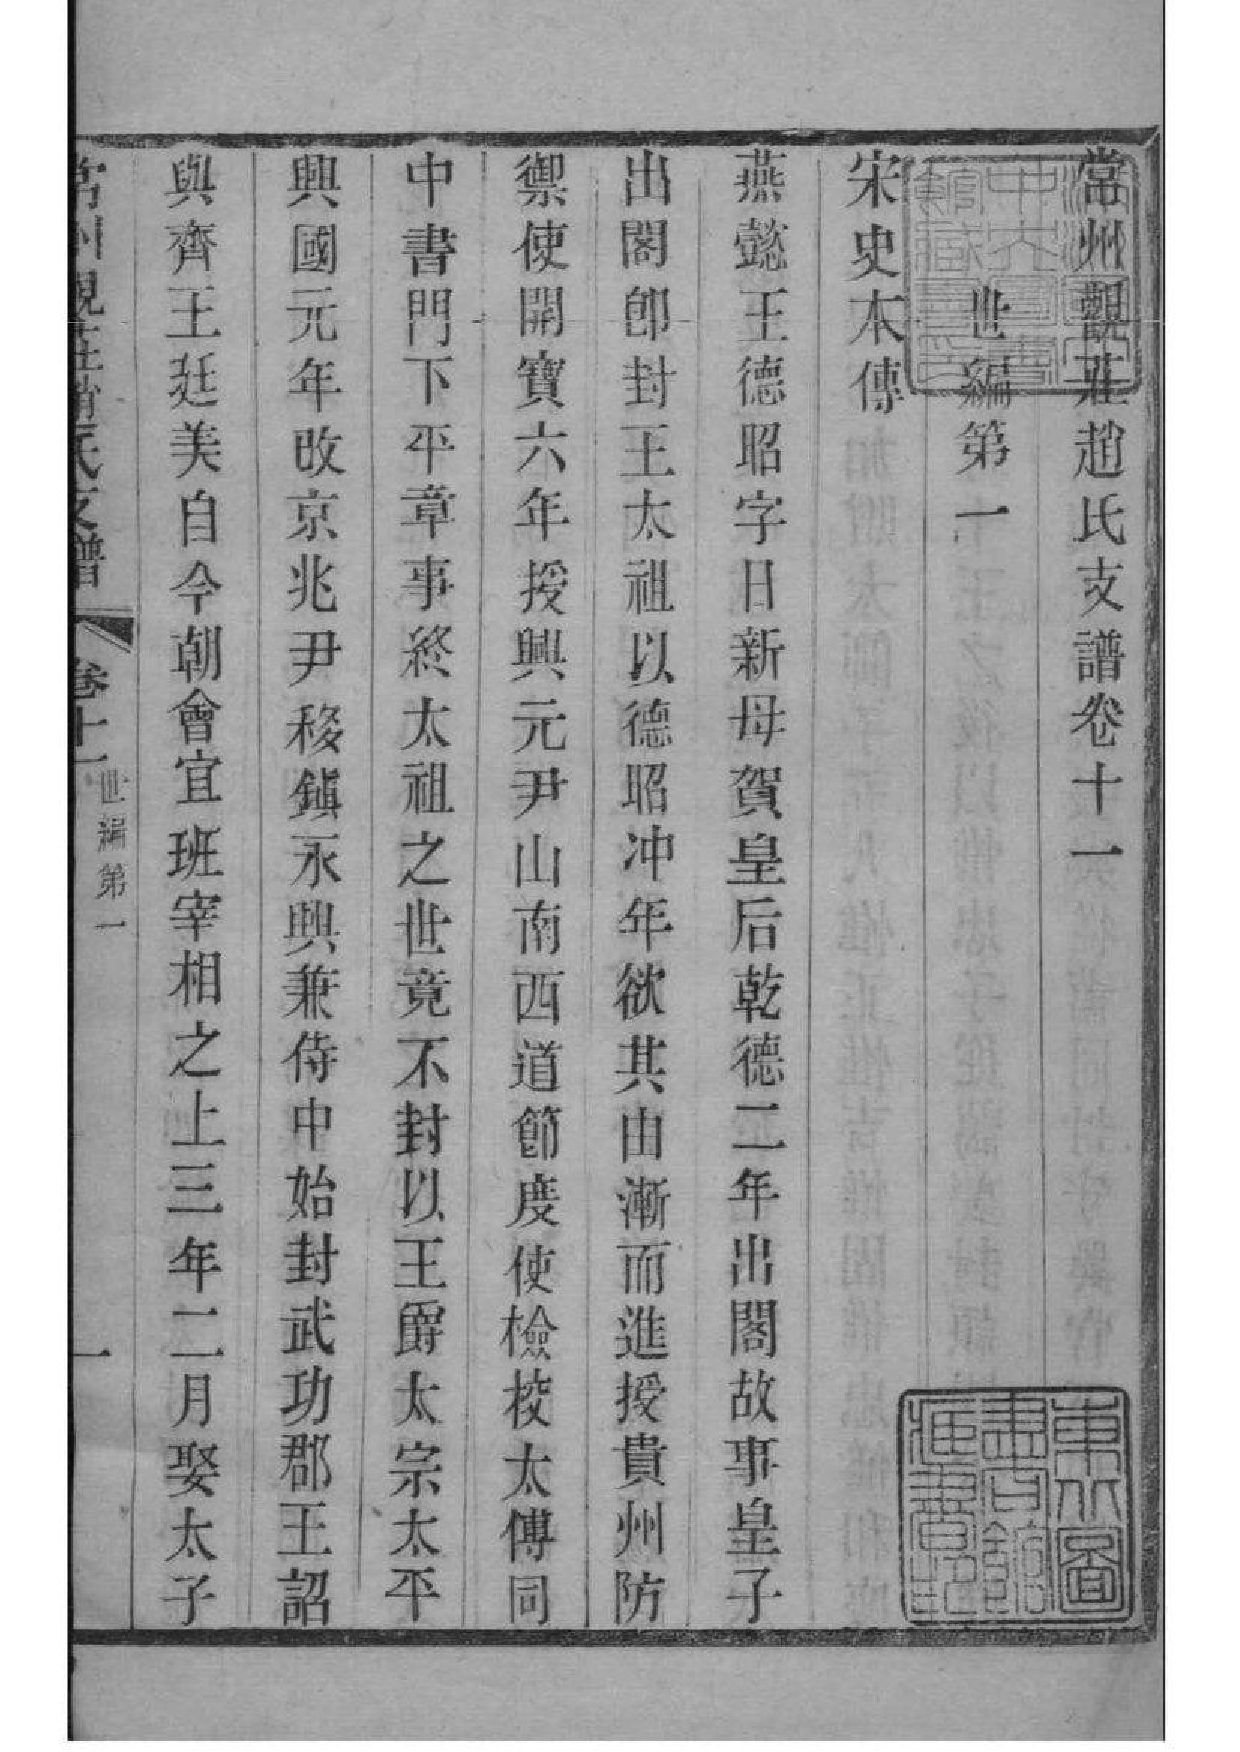 常州觀莊趙氏支譜卷十一
世編第一
宋史本傳
燕懿王德昭字日新母賀皇后乾德二年出閣故事皇子
出閣卽封王太祖以德昭冲年欲其由漸而進授貴州防
禦使開寶六年授興元尹山南西道節度使檢校太傅同
中書門下平章事終太祖之世竟不封以王爵太宗太平
興國元年改京兆尹移鎮永興兼侍中始封武功郡王詔
與齊王廷美自今朝會宜班宰相之上三年二月娶太子
常州觀莊趙氏支譜
卷十一
世編第一
一